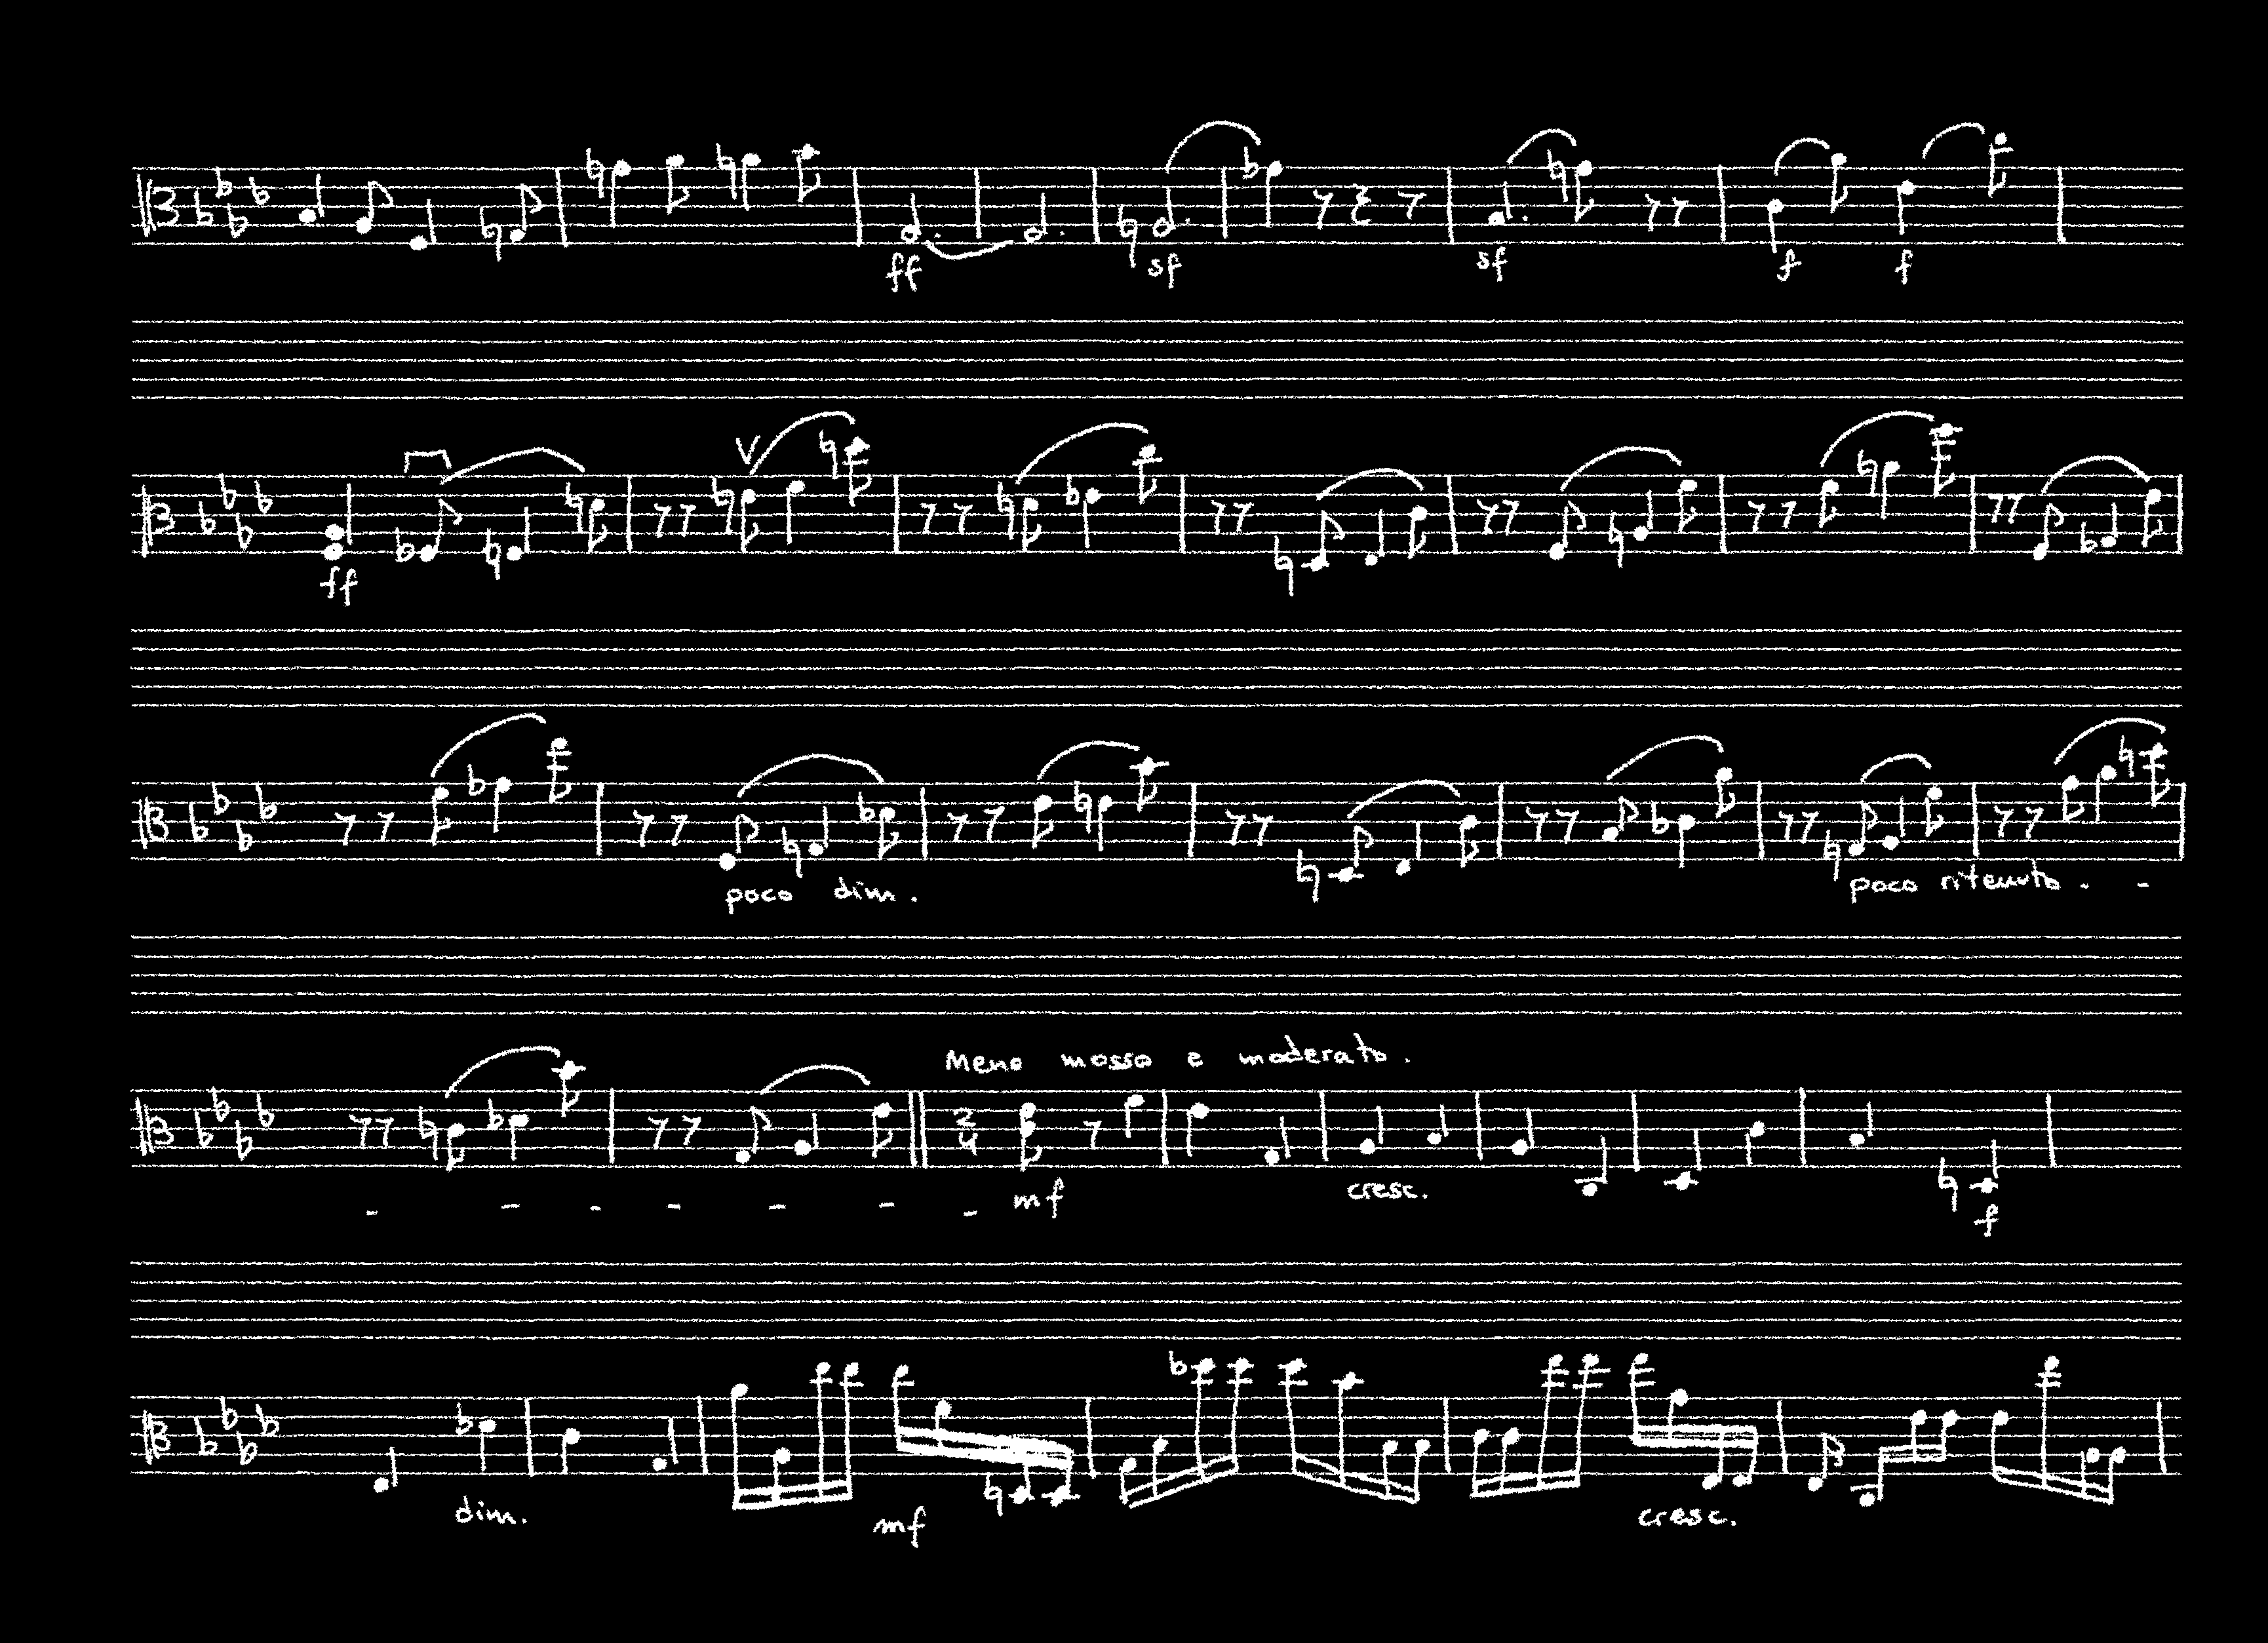 ff sf sf f f
ff
poco dim. poco ritenuto . -
Meno mosso e moderato .
2
4
- - - - - - - mf cresc. f
dim. mf cresc.